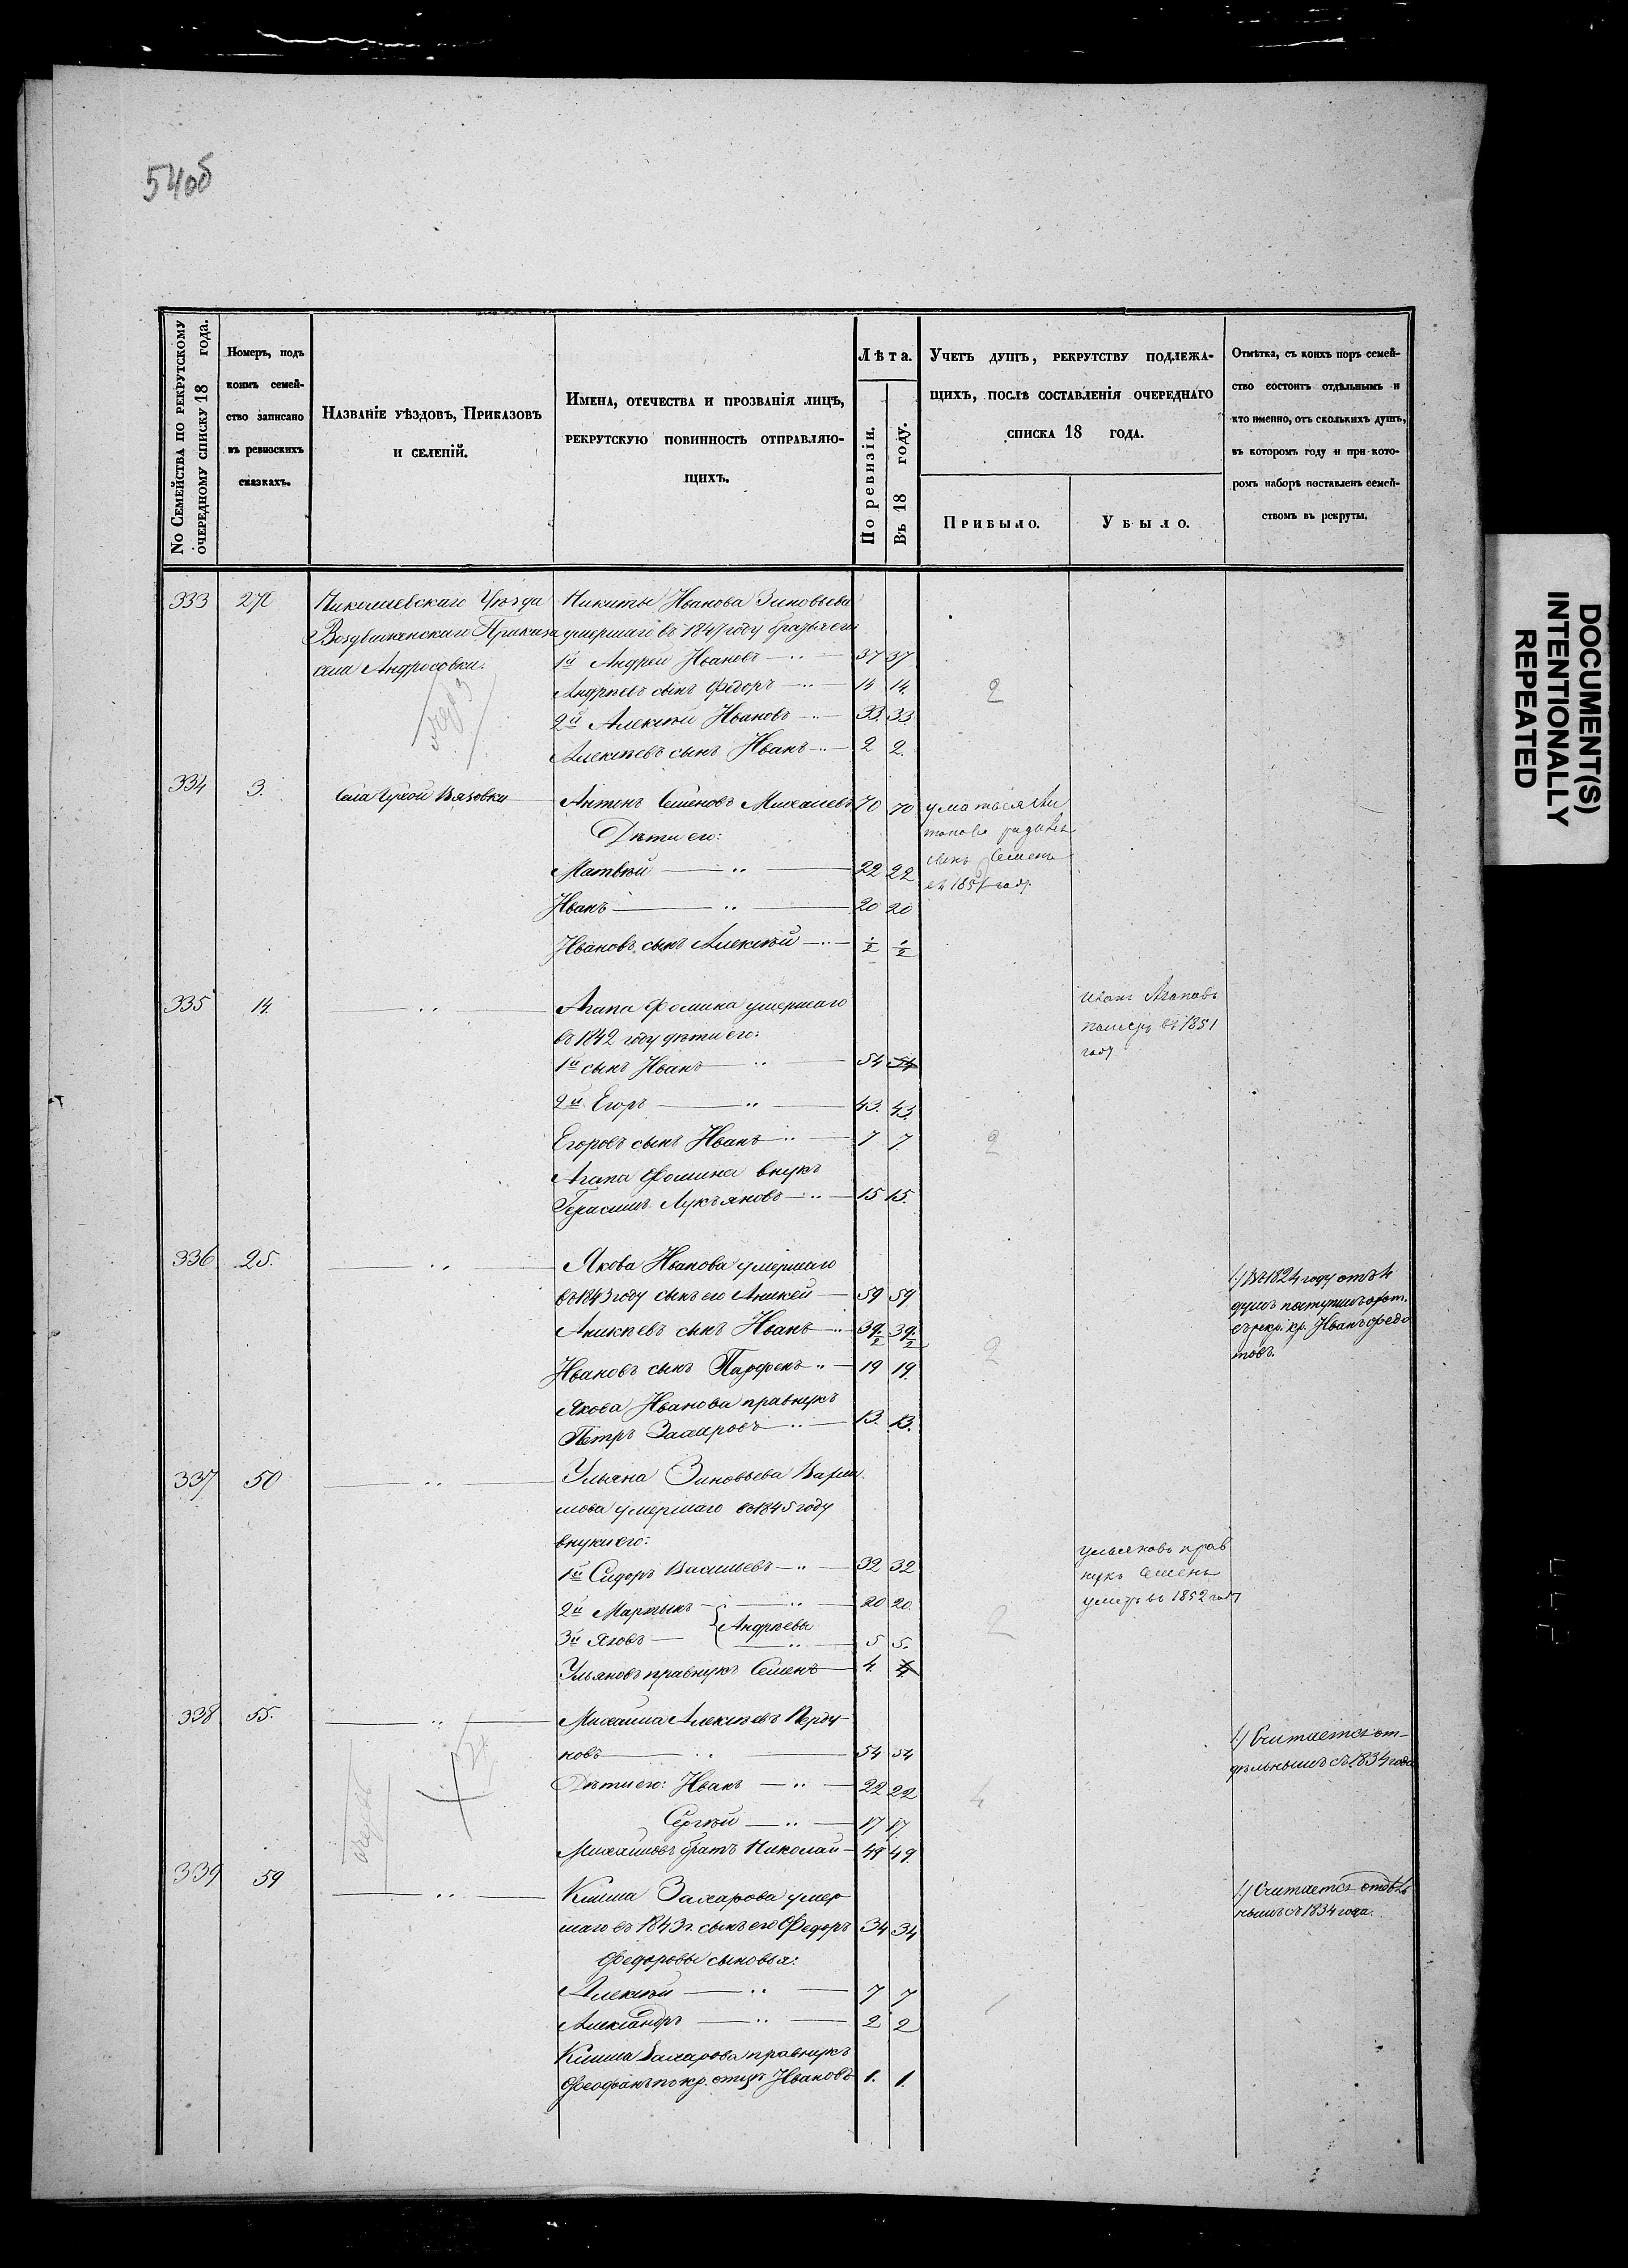 540б
No Семейства по рекрутскому
очередному списку 18 года.
Номеръ, подъ
коимъ семей-
ство записано
въ ревизскихъ
сказкахъ.
Названіе уѣздовъ, Приказовъ
и селеній.
Имена, отечества и прозванія лицъ,
рекрутскую повинность отправляю-
щихъ.
Лѣта.
По ревизіи.
Въ 18 году.
Учетъ душъ, рекрутству подлежа-
щихъ, послѣ составленія очереднаго
списка 18 года.
Прибыло.
Убыло.
Отмѣтка, съ коихъ поръ семей-
ство состоитъ отдѣльнымъ и
кто именно, отъ сколькихъ душъ,
въ которомъ году и при кото-
ромъ наборѣ поставленъ семей-
ствомъ въ рекруты.
333 Николаевскаго Уѣзда Никиты Иванова Зиновьева
Воздвиженскаго Приказа умершаго въ 1847 году братья его
села Андросовки. 1й Андрей Ивановъ 37 37
Андреевъ сынъ Федоръ 14 14 2
2й Алексѣй Ивановъ 33 33
Алексѣевъ сынъ Иванъ 2 2
334 3. Села Сухой Вязовки Антонъ Семеновъ Михаиловъ 70 70
Дѣти его:
Матвѣй 22 22
Иванъ 20 20
Ивановъ сынъ Алексѣй 1/2 1/2
сынъ Семенъ
въ 1851 году
335 14. Агапа Фомина умершаго
въ 1842 году дѣти его:
1й сынъ Иванъ 54 54
2й Егоръ 43. 43.
Егоровъ сынъ Иванъ 7 7. 2
Агапа Фомина внукъ
Герасимъ Лукъяновъ 15 15.
Иванъ Агаповъ
померъ въ 1851
году
336 25. Якова Иванова умершаго
въ 1843 году сынъ его Аникей 59 59
Аникѣевъ сынъ Иванъ 39 1/2 39 1/2
Ивановъ сынъ Парфенъ 19 19. 2
Якова Иванова правнукъ
Петръ Захаровъ 13. 13.
1./ Въ 1824 году отъ 4
душъ поступилъ
въ рекр. Иванъ Федо
товъ.
337 50 Ульяна Зиновьева
умершаго въ 1845 году
внуки его:
1й Сидоръ Васильевъ 32 32
2й Мартынъ 20 20.
Андреевы
3й Яковъ 5 5.
Ульяновъ правнукъ Семенъ 4. 4.
2
Ульяновъ прав
нукъ Семенъ
умеръ въ 1852 году
338 55. Михаила Алексѣевъ
новъ 54 54
Дѣти его: Иванъ 22 22
Сергѣй 17 17
Михаиловъ братъ Николай 49 49.
4
1./ Считается от-
дѣльнымъ съ 1834 года
339 59 Клима Захарова умер
шаго въ 1843 г. сынъ его Федоръ 34 34
Федоровы сыновья:
Алексѣй 7 7
Александръ 2 2
Клима Захарова правнукъ
Феофанъ по кр. отцу Ивановъ 1. 1.
1./ Считается отдѣль
нымъ съ 1834 года.
DOCUMENT(S)
INTENTIONALLY
REPEATED